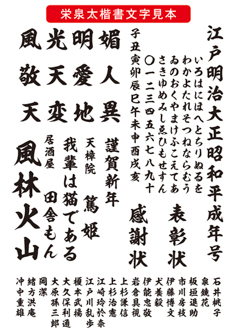 栄泉太楷書文字見本
江戸明治大正昭和平成年号
いろはにほへとちりぬるを
わかよたれそつねならむう
ゐのおくやまけふこえてあ
さきゆめみしゑひもせすん
〇一二三四五六七八九十
子丑寅卯辰巳午未申酉戌亥
媚人異
明愛地
光天変
風敬天
表彰状
感謝状
謹賀新年
天樟院 篤姫
我輩は猫である
居酒屋 田舎もん
風林火山
石井桃子
泉鏡花
板垣退助
市川房枝
伊藤博文
犬養毅
伊能忠敬
岩倉具視
上杉謙信
上杉治憲
江崎玲於奈
江戸川乱歩
榎本武揚
大久保利通
大原孫三郎
岡潔
緒方洪庵
沖中重雄